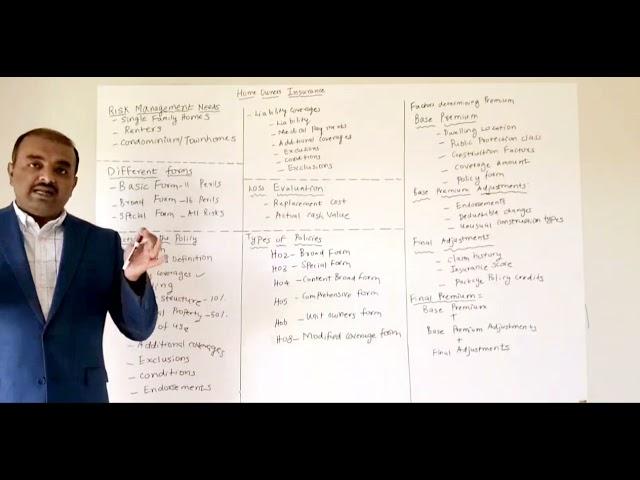 Home Owners Insurance
Risk Management Needs
- Single Family Homes
- Renters
- Condominium/Townhomes
Different forms
- Basic Form - 11 Perils
- Broad Form - 16 Perils
- Special Form - All Risks
the Policy
Definition
coverages ✓
structure - 10%
Property - 50%
of use
- Additional coverages
- Exclusions
- conditions
- Endorsements
- Liability coverages
- Liability
- Medical Payments
- Additional coverages
- Exclusions
- Conditions
- Exclusions
Loss Evaluation
- Replacement cost
- Actual cash value
Types of Policies
HO2 - Broad Form
HO3 - Special Form
HO4 - Content Broad form
HO5 - Comprehensive form
HO6 - Unit owners form
HO8 - Modified coverage form
Factors determining Premium
Base Premium
- Dwelling Location
- Public Protection class
- Construction Factors
- Coverage amount
- Policy form
Base Premium Adjustments
- Endorsements
- Deductable changes
- Unusual construction types
Final Adjustments
- Claim history
- Insurance score
- Package Policy credits
Final Premium =
Base Premium
+
Base Premium Adjustments
+
Final Adjustments